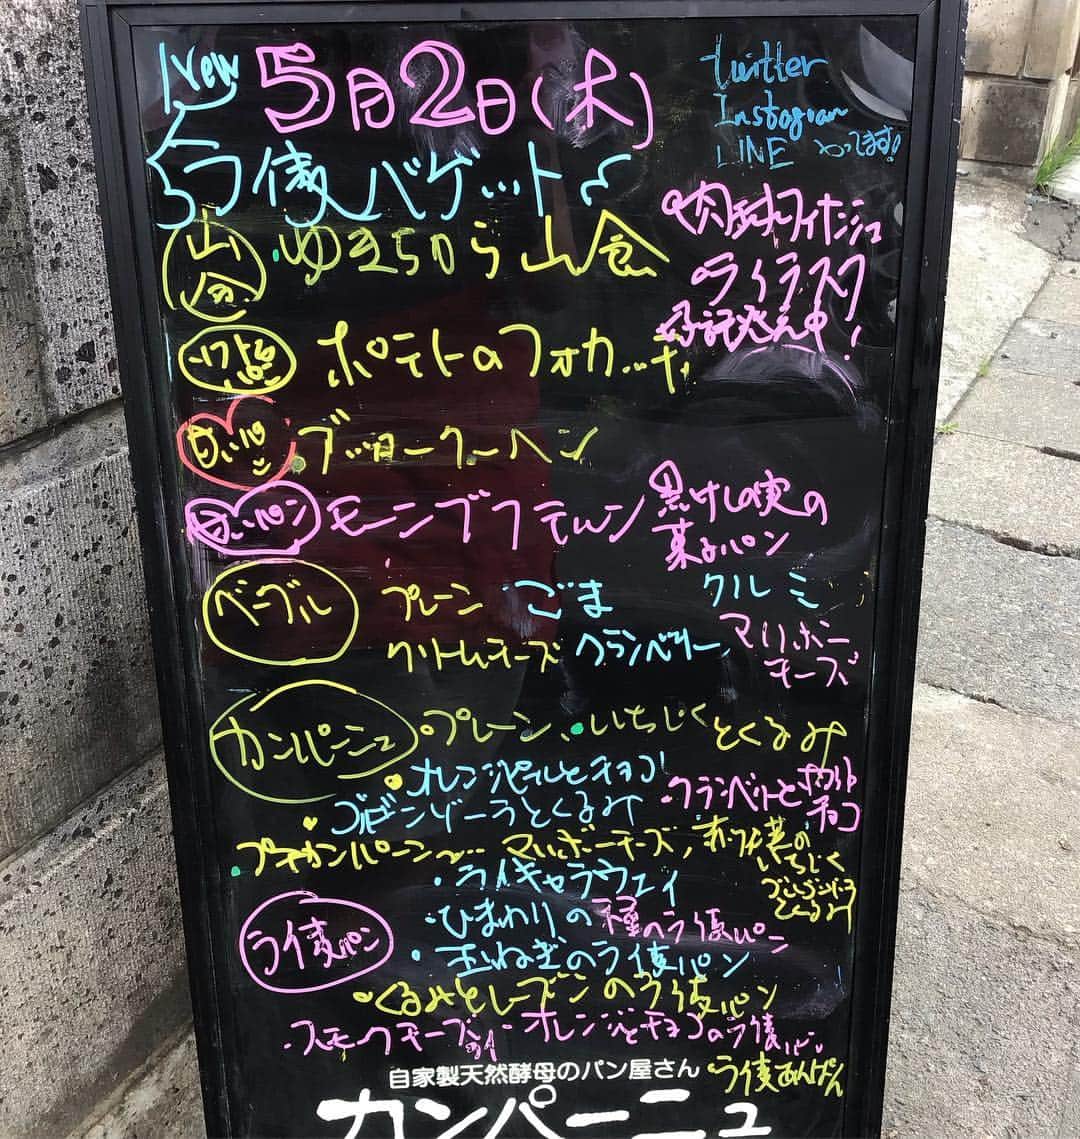 New 5月2日(木)
twitter
Instagram
LINE やってます!
ライ麦バゲット
フィナンシェ
ライラスク
中!
山食 ゆきちから山食
ソフトな パン ポテトのフォカッチャ
白いパン ブッタークーヘン
モーンブフテルン 黒けしの実の
菓子パン
ベーグル プレーン ごま クルミ
クリームチーズ クランベリー マリボーチーズ
カンパーニュ プレーン いちじくとくるみ
オレンジピールとチョコ
クランベリーとホワイトチョコ
ゴルゴンゾーラとくるみ
プチカンパーニュ マリボーチーズ、赤ワイン煮のいちじく
ゴルゴンゾーラとくるみ
ライ麦パン ・ライキャラウェイ
・ひまわりの種のライ麦パン
・玉ねぎのライ麦パン
・くるみとレーズンのライ麦パン
・スモークチーズ ・オレンジとチョコのライ麦パン
ライ麦あんぱん
自家製天然酵母のパン屋さん
カンパーニュ